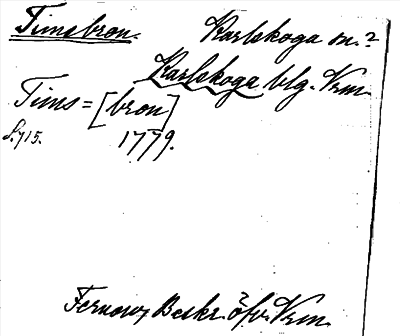 Timsbron. Karlskoga sn.?
Karlskoga blg. Vrm.
Tims=[bron]
S. 715. 1779.
Fernow, Beskr. öfv. Vrm.